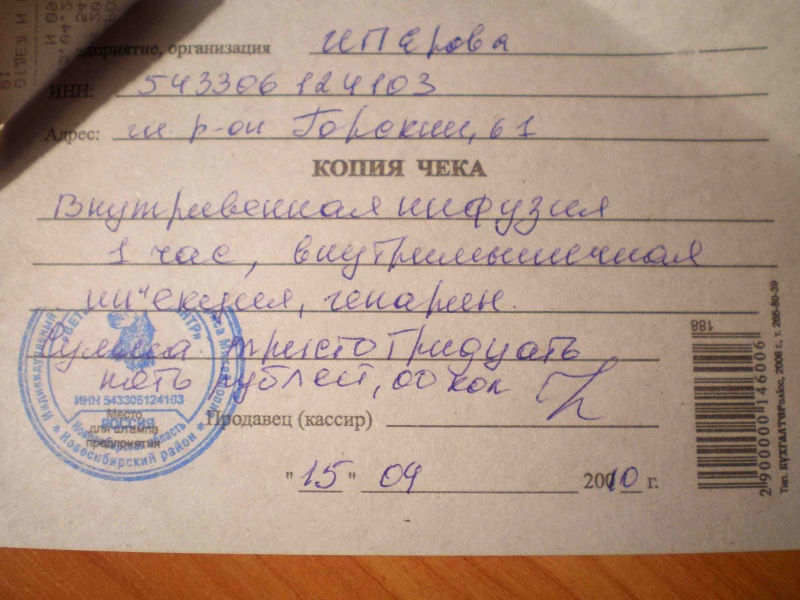 приятие, организация ИП Ерова
ИНН: 543306124103
Адрес: мк. р-он Горский, 61
КОПИЯ ЧЕКА
Внутривенная инфузия
1 час, внутримышечная
инъекция, гепарин.
Сумма триста тридцать
пять рублей, 00 коп
Индивидуальный
ИНН 543306124103
РОССИЯ
Новосибирская область
* Новосибирский район *
Место
для штампа
предприятия
Продавец (кассир)
"15" 04 2010 г.
188
2 900000 146006
Тип. БУХГАЛТЕРплюс, 2006 г., т. 265-80-39